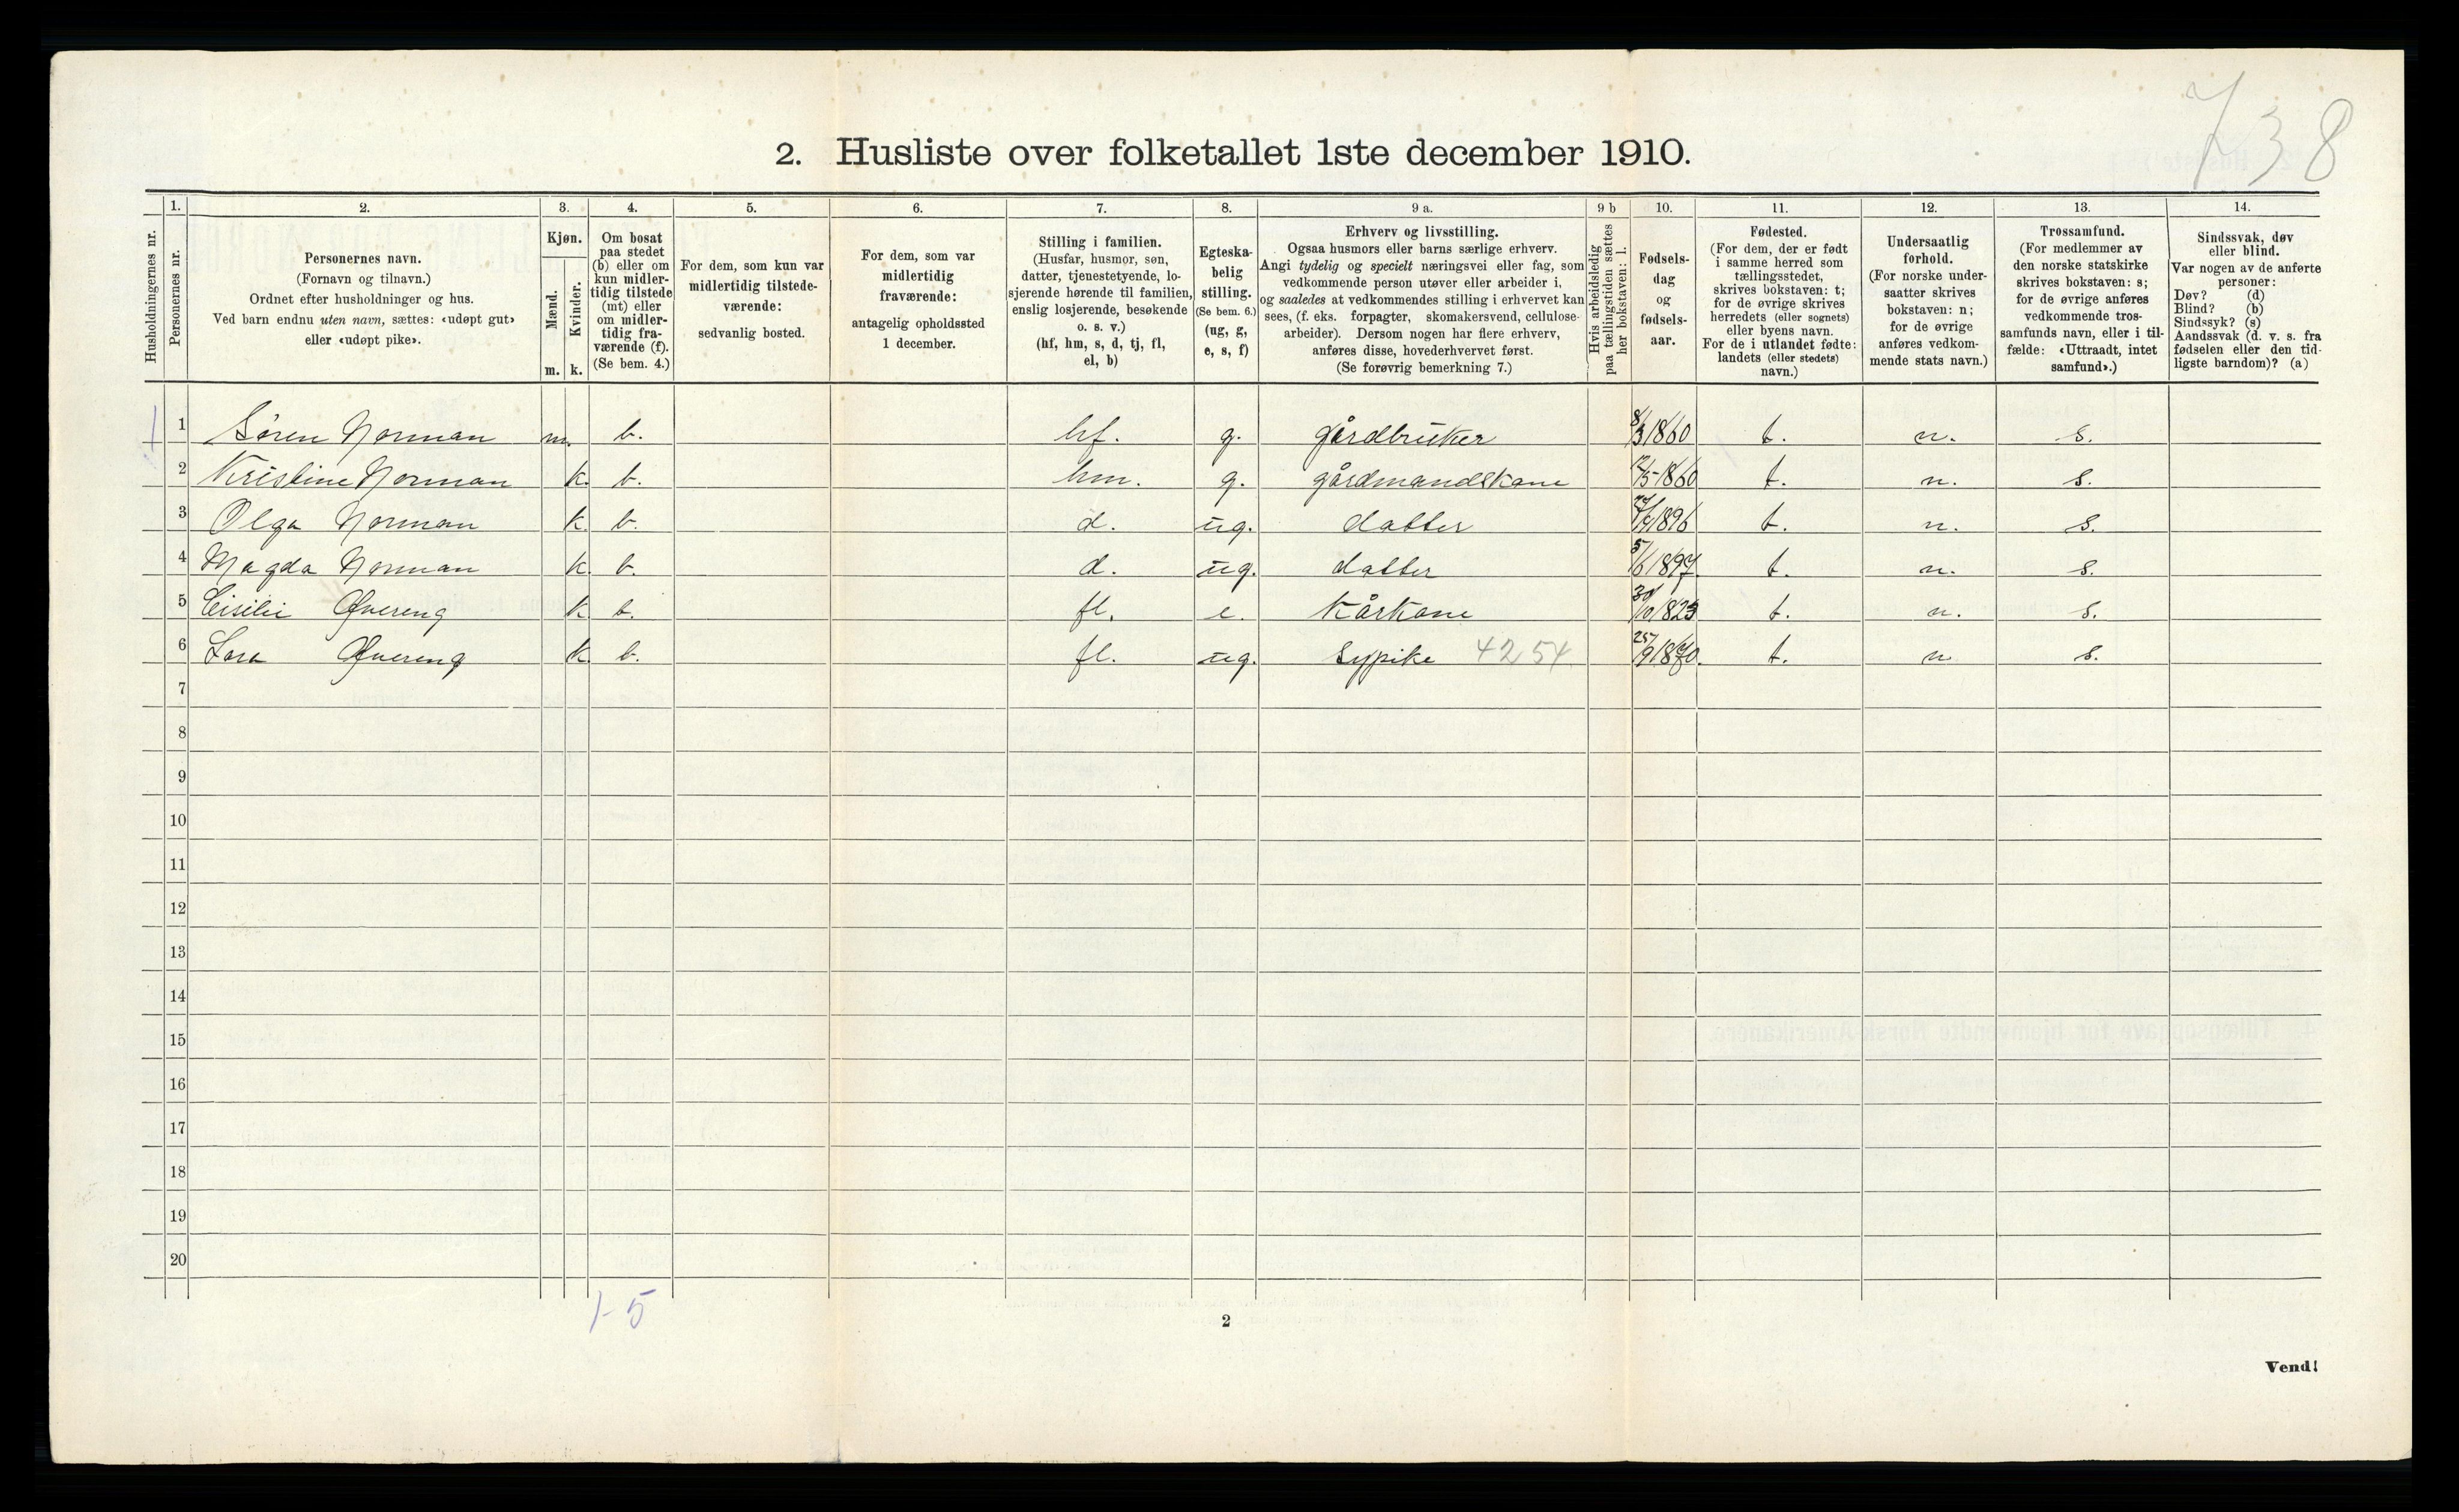 738
2. Husliste over folketallet 1ste december 1910.
Husholdningernes nr.
1. Personernes nr.
2. Personernes navn.
(Fornavn og tilnavn.)
Ordnet efter husholdninger og hus.
Ved barn endnu uten navn, sættes: «udøpt gut»
eller «udøpt pike».
3. Kjøn.
Mænd. m.
Kvinder. k.
4. Om bosat
paa stedet
(b) eller om
kun midler-
tidig tilstede
(mt) eller
om midler-
tidig fra-
værende (f).
(Se bem. 4.)
5. For dem, som kun var
midlertidig tilstede-
værende:
sedvanlig bosted.
6. For dem, som var
midlertidig
fraværende:
antagelig opholdssted
1 december.
7. Stilling i familien.
(Husfar, husmor, søn,
datter, tjenestetyende, lo-
sjerende hørende til familien,
enslig losjerende, besøkende
o. s. v.)
(hf, hm, s, d, tj, fl,
el, b)
8. Egteska-
belig
stilling.
(Se bem. 6.)
(ug, g,
e, s, f)
9 a. Erhverv og livsstilling.
Ogsaa husmors eller barns særlige erhverv.
Angi tydelig og specielt næringsvei eller fag, som
vedkommende person utøver eller arbeider i,
og saaledes at vedkommendes stilling i erhvervet kan
sees, (f. eks. forpagter, skomakersvend, cellulose-
arbeider). Dersom nogen har flere erhverv,
anføres disse, hovederhvervet først.
(Se forøvrig bemerkning 7.)
9 b Hvis arbeidsledig
paa tællingstiden sættes
her bokstaven: l.
10. Fødsels-
dag
og
fødsels-
aar.
11. Fødested.
(For dem, der er født
i samme herred som
tællingsstedet,
skrives bokstaven: t;
for de øvrige skrives
herredets (eller sognets)
eller byens navn.
For de i utlandet fødte:
landets (eller stedets)
navn.)
12. Undersaatlig
forhold.
(For norske under-
saatter skrives
bokstaven: n;
for de øvrige
anføres vedkom-
mende stats navn.)
13. Trossamfund.
(For medlemmer av
den norske statskirke
skrives bokstaven: s;
for de øvrige anføres
vedkommende tros-
samfunds navn, eller i til-
fælde: «Uttraadt, intet
samfund».)
14. Sindssvak, døv
eller blind.
Var nogen av de anførte
personer:
Døv? (d)
Blind? (b)
Sindssyk? (s)
Aandssvak (d. v. s. fra
fødselen eller den tid-
ligste barndom)? (a)
1 1 Søren Norman m. b. hf. g. gårdbruker 8/3 1860 t. n. s.
2 Kristine Norman k. b. hm. g. gårdmandskone /5-1860 t. n. s.
3 Olga Norman k. b. d. ug. datter 1896 t. n. s.
4 Magda Norman k. b. d. ug. datter 5/6 1897. t. n. s.
5 Cisilie Øvereng k b. fl. e. kårkone 30/10 1823 t. n. s.
6 Lora Øvereng k. b. fl. ug. sypike 4254 25/9 1870. t. n s.
7
8
9
10
11
12
13
14
15
16
17
18
19
20
1-5
2
Vend!